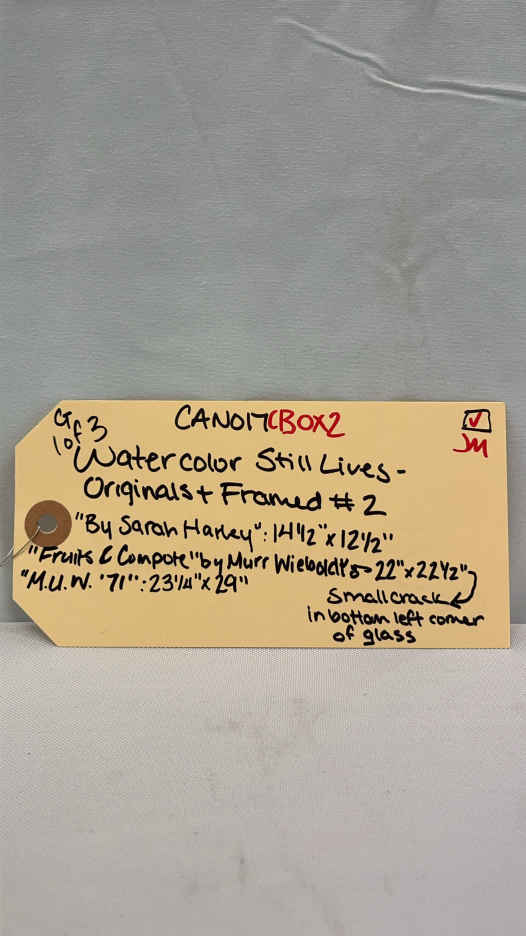 CT
1 of 3
CAN017CBOX2
JM
Watercolor Still Lives -
Originals + Framed # 2
"By Sarah Harvey": 14 1/2" x 12 1/2"
"Fruits & Compote" by Murr Wieboldt 22" x 22 1/2"
"M.U.W. '71": 23 1/4" x 29"
Small crack
in bottom left corner
of glass